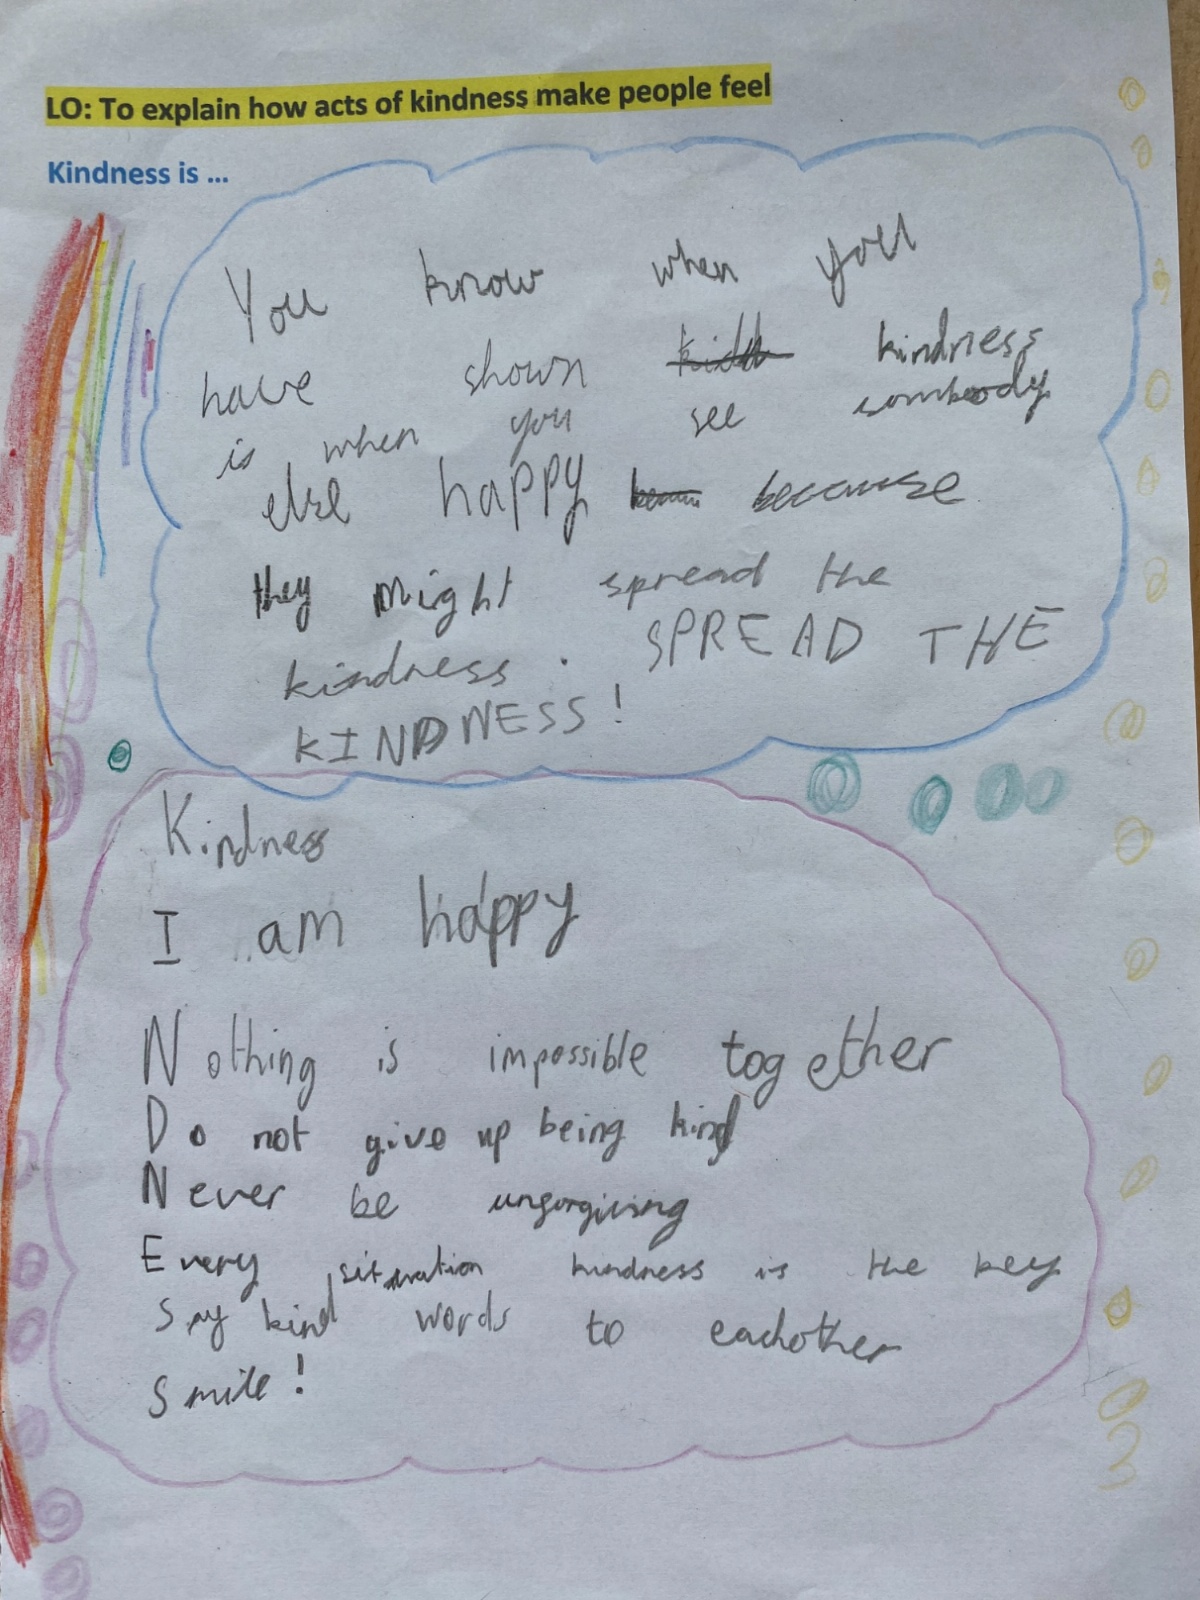 LO: To explain how acts of kindness make people feel
Kindness is ...
You know when you
have shown kindness
is when you see sombeody
else happy because
they might spread the
kindness. SPREAD THE
KINDNESS!
Kindness
I am happy
Nothing is impossible together
Do not give up being kind
Never be unforgiving
Every situation kindness is the key
Say kind words to eachother
Smile!